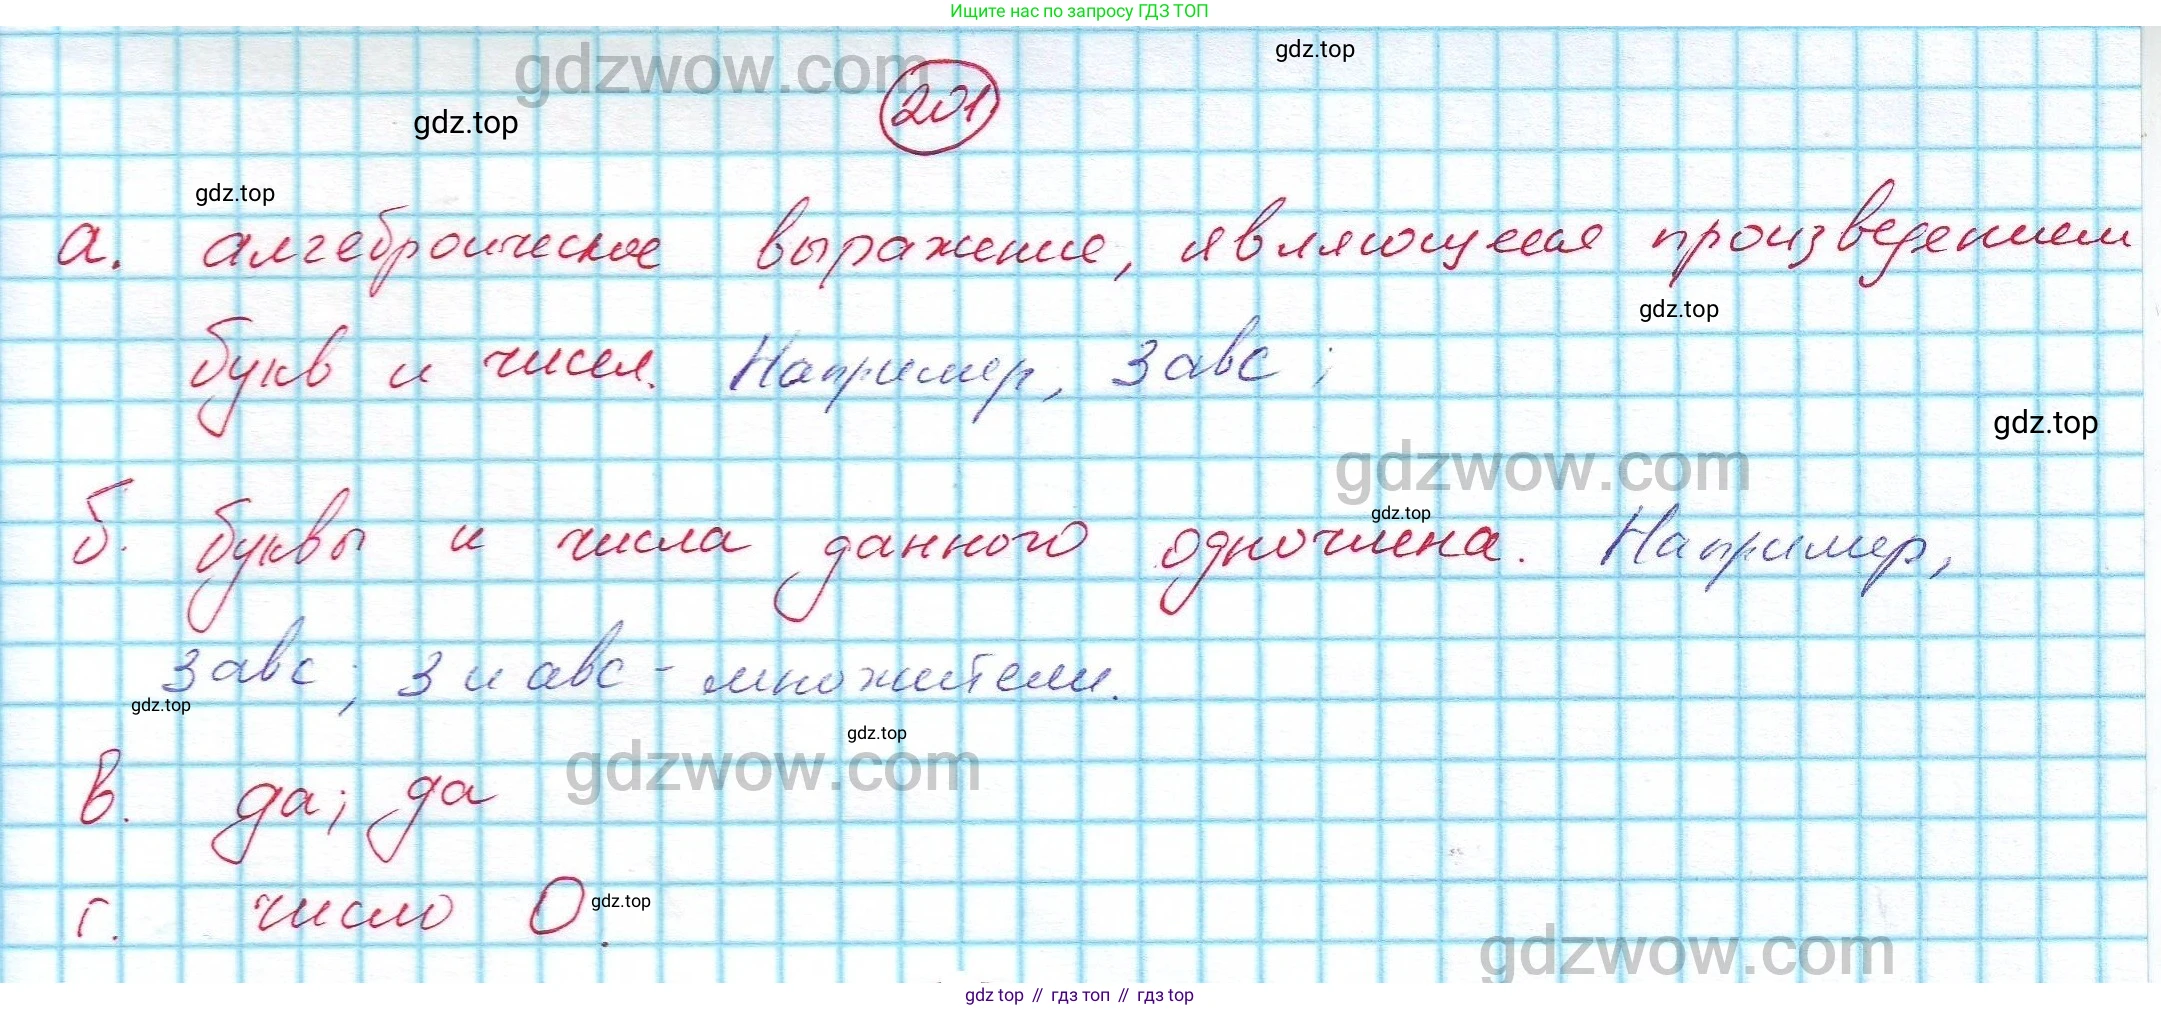 Ищите нас по запросу ГДЗ ТОП
gdz.top
gdzwow.com
201
gdz.top
gdz.top
а. алгебраическое выражение, являющееся произведением
gdz.top
букв и чисел. Например, 3авс;
gdz.top
gdzwow.com
gdz.top
б. буквы и числа данного одночлена. Например,
3авс; 3 и авс - множители.
gdz.top
gdz.top
gdzwow.com
в. да; да
г. число 0.
gdz.top
gdzwow.com
gdz top // гдз топ // гдз top